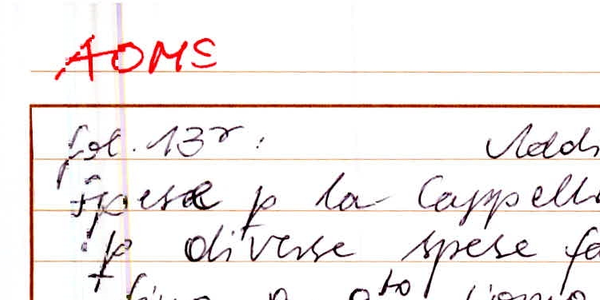 AOMS
fol. 13r:
Spese p la Cappell
p diverse spese fa
fino a